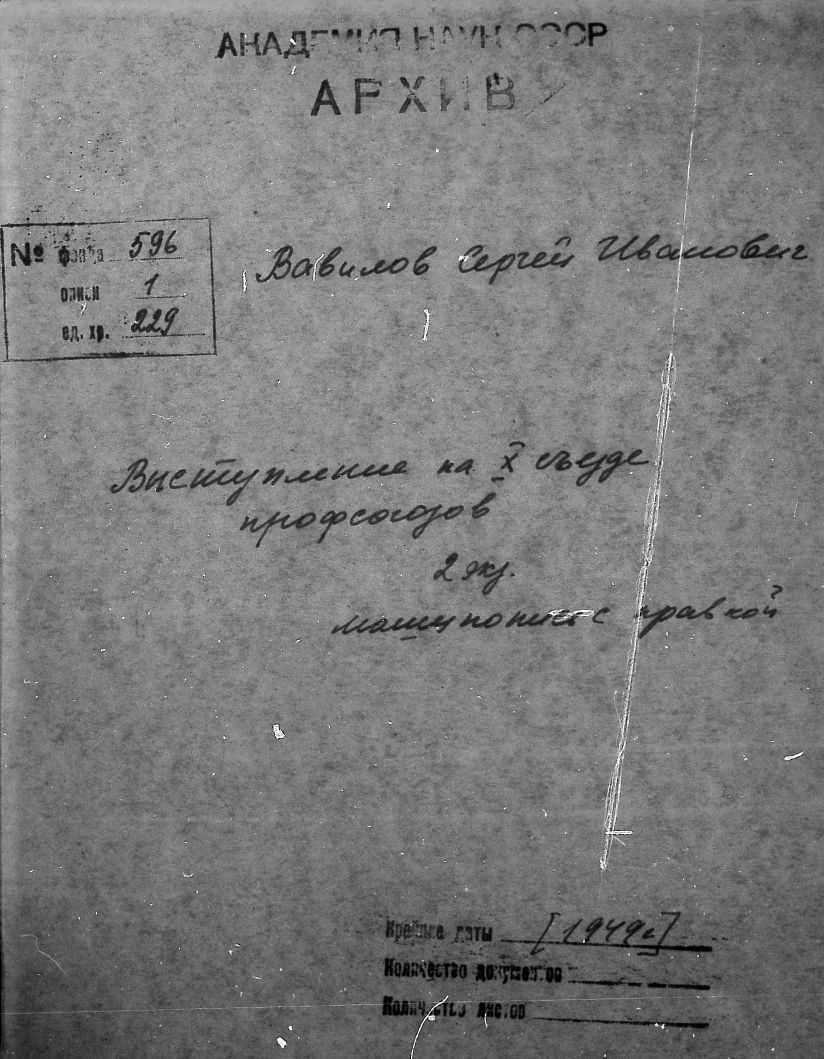 АКАДЕМИЯ НАУК СССР
АРХИВ
№ фонда 596
описи 1
ед. хр. 229
Вавилов Сергей Иванович
Выступление на X съезде
профсоюзов
2 экз.
машинопись с правкой
Крайние даты [1949г.]
Количество документов
Количество листов